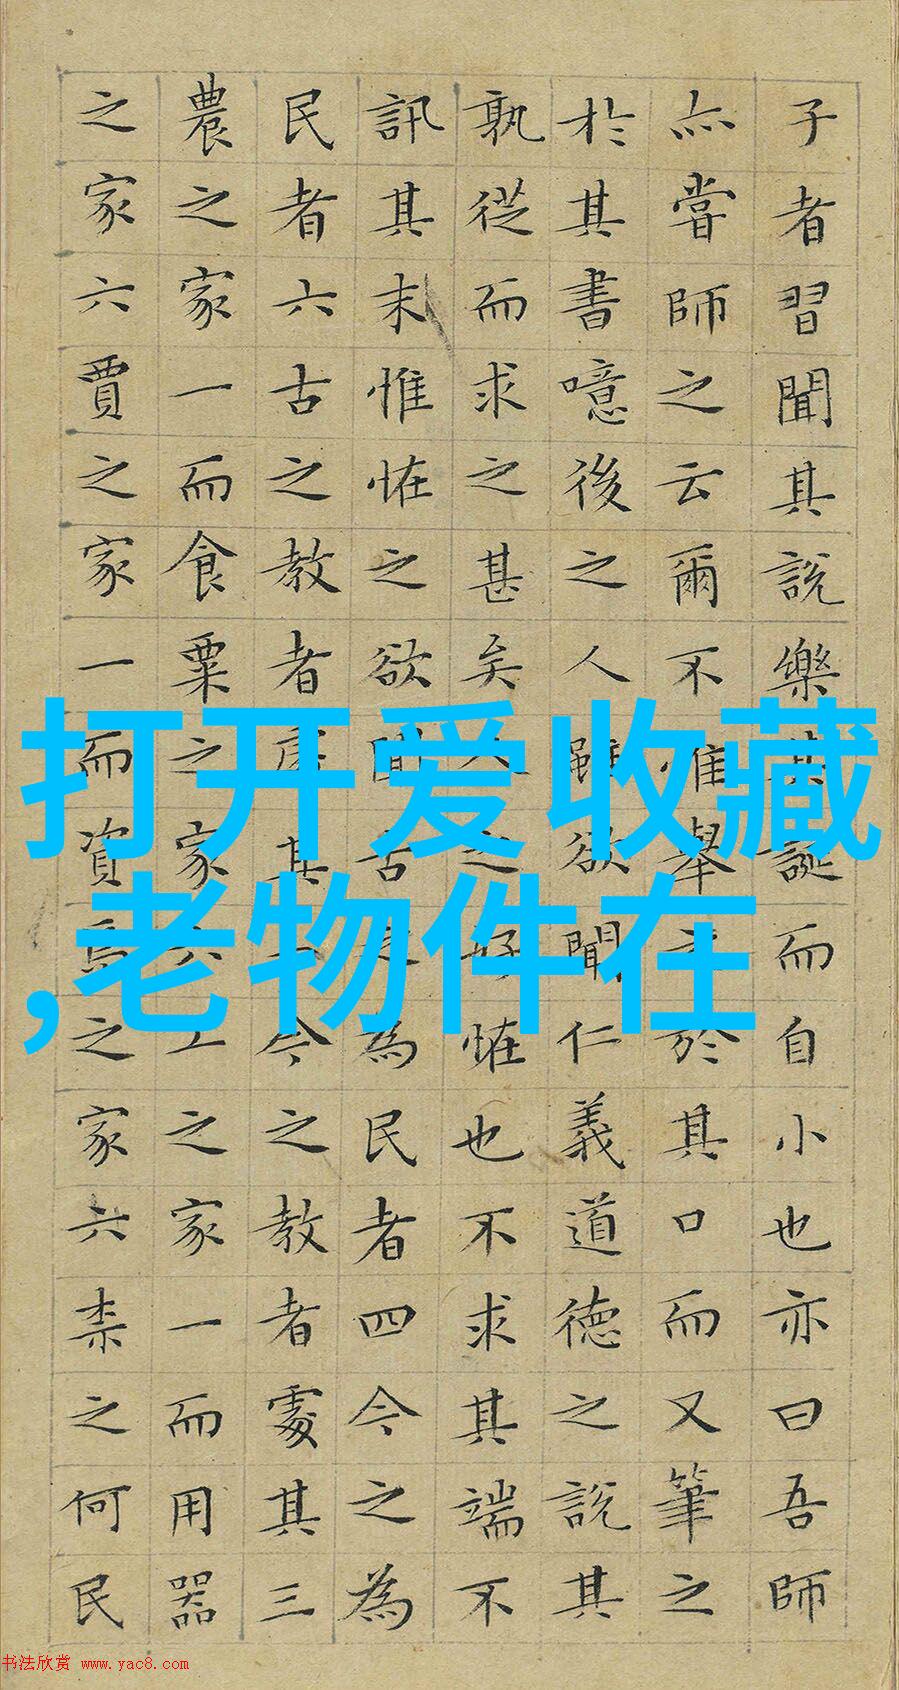 子者習聞其說樂其誕而自小也亦曰吾師
亦嘗師之云爾不惟舉之於其口而又筆之
於其書噫後之人雖欲聞仁義道德之說其
孰從而求之甚矣人之好恠也不求其端不
訊其末惟恠之欲聞古之為民者四今之為
民者六古之教者處其一今之教者處其三
農之家一而食粟之家六工之家一而用器
之家六賈之家一而資焉之家六柰之何民
打开爱收藏
,老物件在
书法欣赏 www.yac8.com